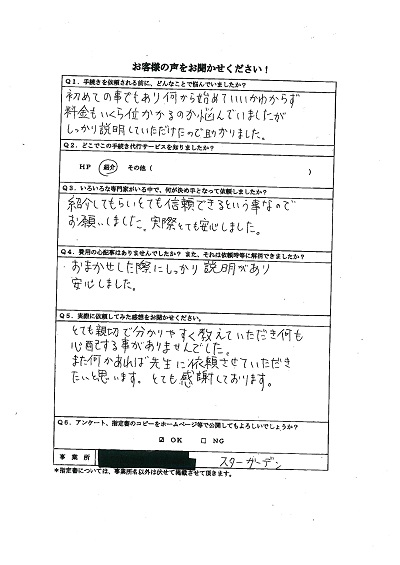 お客様の声をお聞かせください！
Q１．手続きを依頼される前に、どんなことで悩んでいましたか？
初めての事でもあり何から始めていいかわからず
料金もいくら位かかるのか悩んでいましたが
しっかり説明していただけたので助かりました。
Q２．どこでこの手続き代行サービスを知りましたか？
HP 紹介 その他（ ）
Q３．いろいろな専門家がいる中で、何が決め手となって依頼しましたか？
紹介してもらいとても信頼できるという事なので
お願いしました。実際とても安心しました。
Q４．費用の心配事はありませんでしたか？ また、それは依頼時等に解消できましたか？
おまかせした際にしっかり説明があり
安心しました。
Q５．実際に依頼してみた感想をお聞かせください。
とても親切で分かりやすく教えていただき何も
心配する事がありませんでした。
また何かあれば先生に依頼させていただき
たいと思います。とても感謝しております。
Q６．アンケート、指定書のコピーをホームページ等で公開してもよろしいでしょうか？
☑ OK □ NG
事業所 スターガーデン
*指定書については、事業所名以外は伏せて掲載させて頂きます。